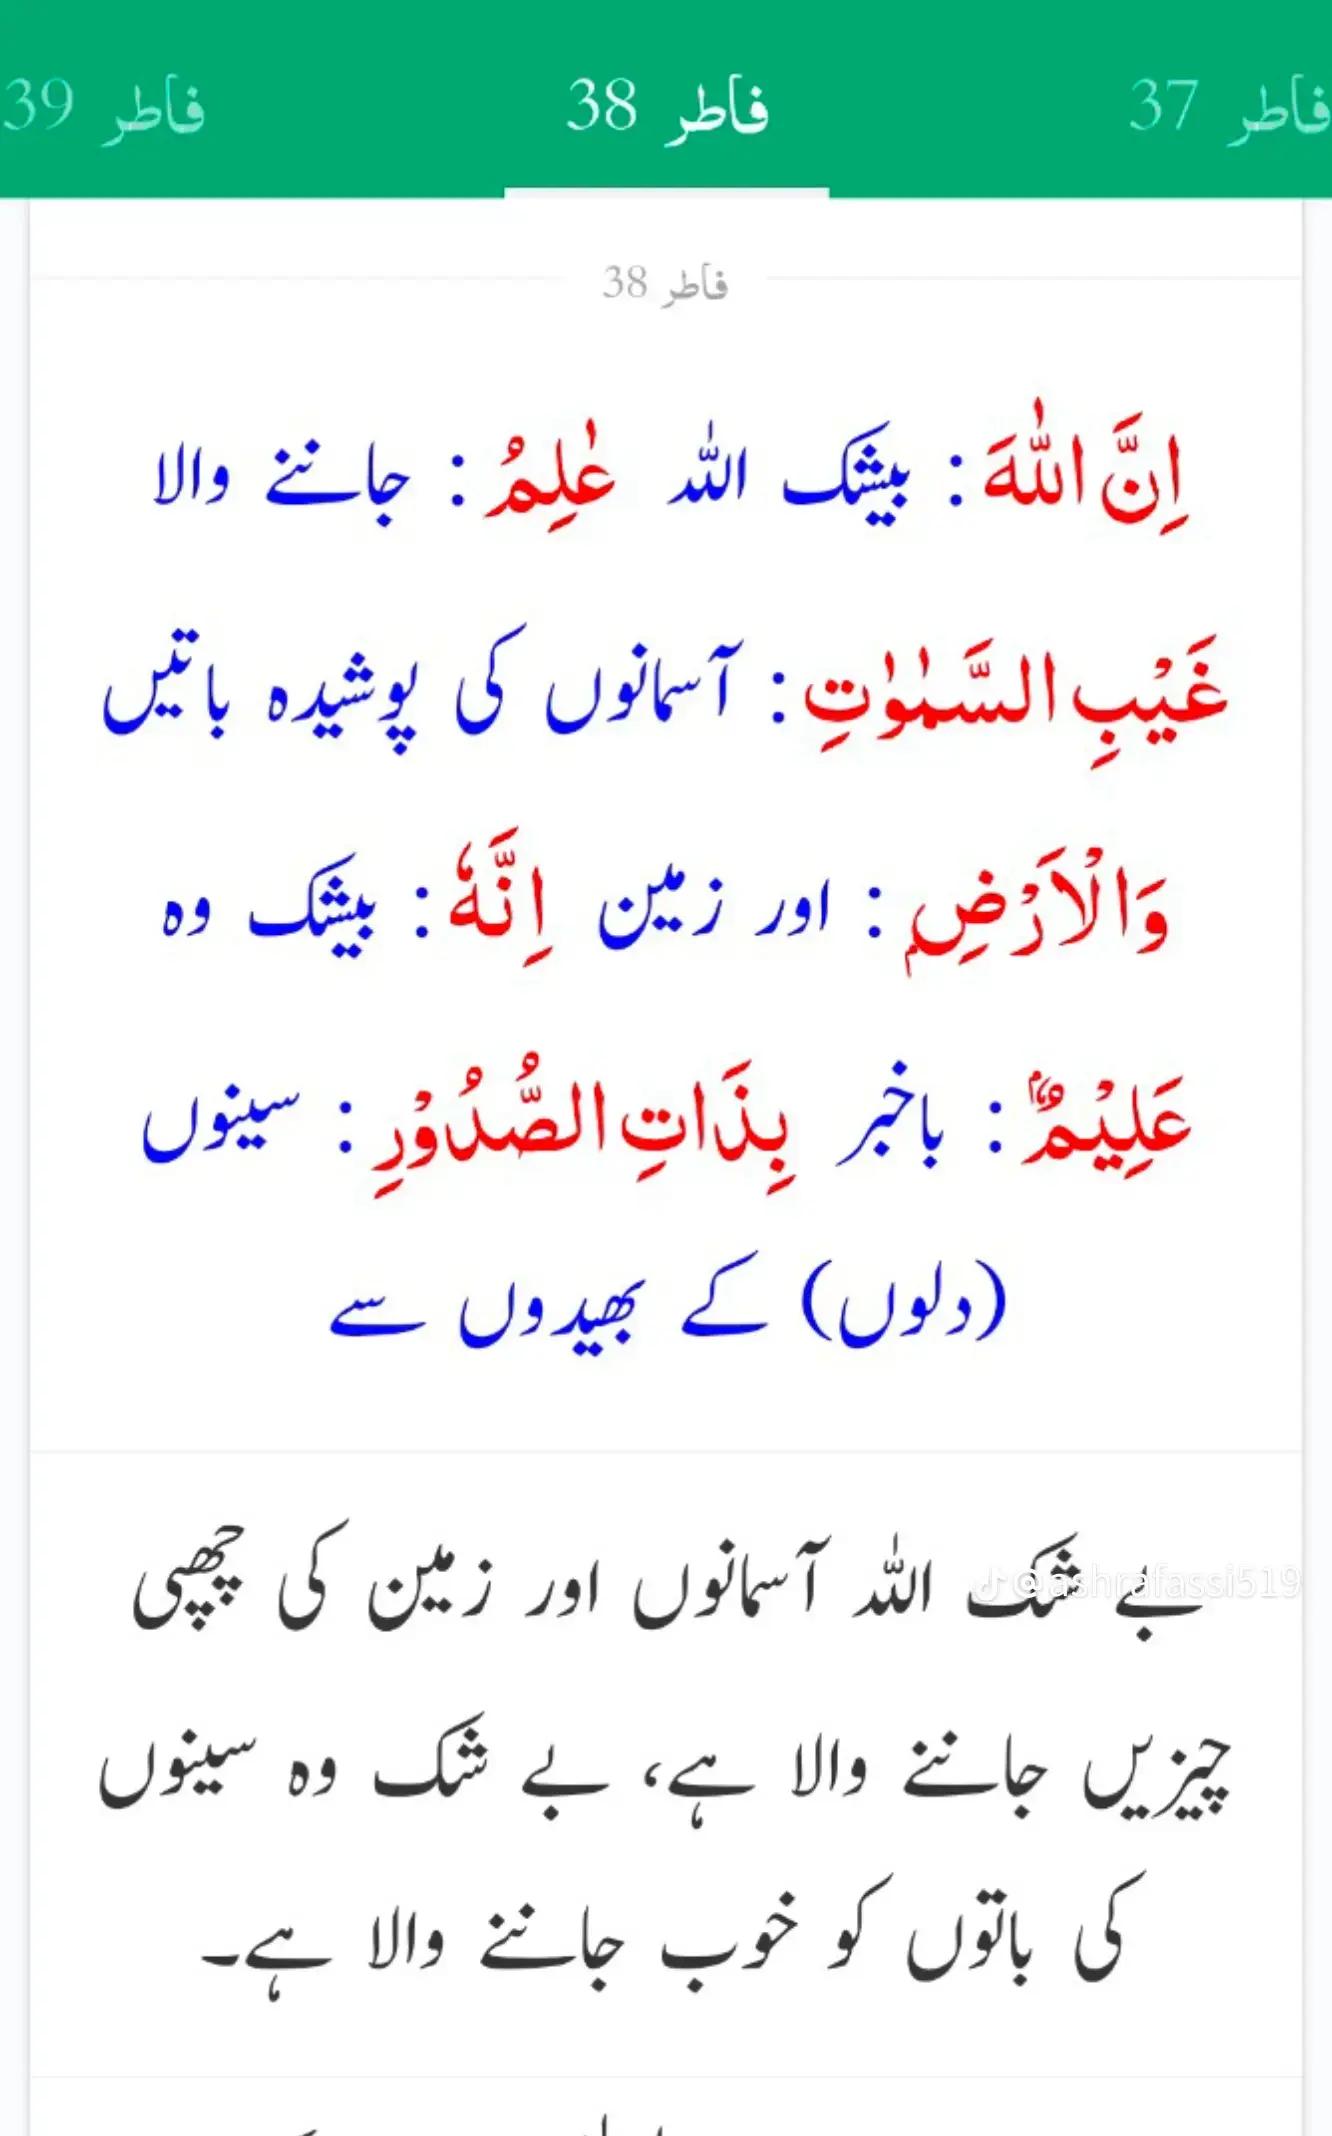 فاطر 37 فاطر 38 فاطر 39
فاطر 38
اِنَّ اللّٰهَ : بیشک اللہ عٰلِمُ : جاننے والا
غَیْبِ السَّمٰوٰتِ : آسمانوں کی پوشیدہ باتیں
وَالْاَرْضِ ۭ : اور زمین اِنَّهٗ : بیشک وہ
عَلِیْمٌۢ : باخبر بِذَاتِ الصُّدُوْرِ : سینوں
(دلوں) کے بھیدوں سے
بے شک اللہ آسمانوں اور زمین کی چھپی
@ashrafassi519
چیزیں جاننے والا ہے، بے شک وہ سینوں
کی باتوں کو خوب جاننے والا ہے۔